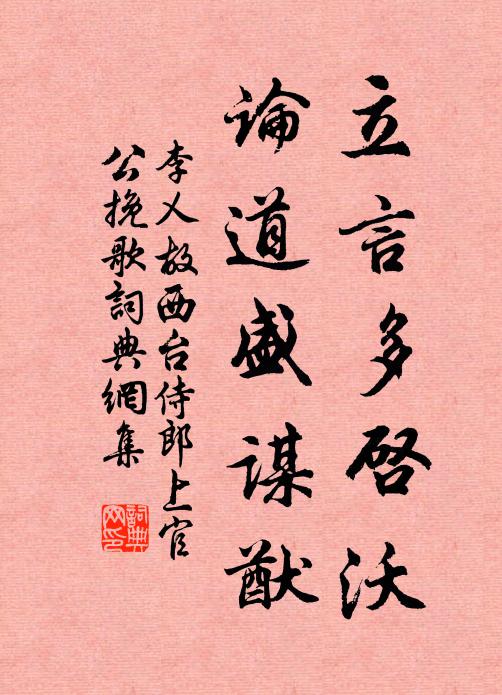 立言多啓沃
論道盛謀猷
李乂故西台侍郎上官
公挽歌詞典網集
詞典网印